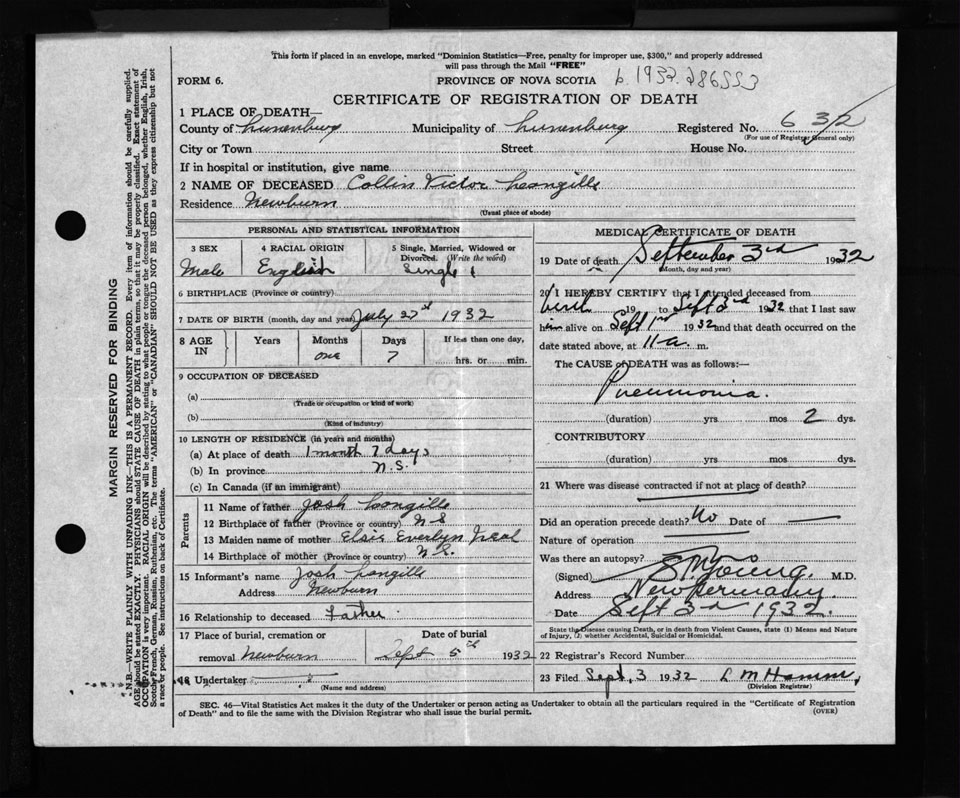 This form if placed in an envelope, marked "Dominion Statistics—Free, penalty for improper use, $300," and properly addressed
will pass through the Mail "FREE"
FORM 6.
PROVINCE OF NOVA SCOTIA
b 1932
CERTIFICATE OF REGISTRATION OF DEATH
1 PLACE OF DEATH—
County of Lunenburg Municipality of Lunenburg Registered No. 6 312
(For use of Registrar General only)
City or Town Street House No.
If in hospital or institution, give name
2 NAME OF DECEASED Collin Victor Langille
Residence Newburn
(Usual place of abode)
PERSONAL AND STATISTICAL INFORMATION
3 SEX 4 RACIAL ORIGIN 5 Single, Married, Widowed or
Divorced. (Write the word)
Male English Single
6 BIRTHPLACE (Province or country)
7 DATE OF BIRTH (month, day and year) July 27st 1932
8 AGE IN Years Months Days If less than one day,
one 7 hrs. or min.
9 OCCUPATION OF DECEASED
(a)
(Trade or occupation or kind of work)
(b)
(Kind of industry)
10 LENGTH OF RESIDENCE (in years and months)
(a) At place of death 1 month 7 days
(b) In province N.S.
(c) In Canada (if an immigrant)
Parents
11 Name of father Josh Langille
12 Birthplace of father (Province or country) N S
13 Maiden name of mother Elsie Everlyn Veal
14 Birthplace of mother (Province or country) N S.
15 Informant's name Josh Langille
Address Newburn
16 Relationship to deceased Father
17 Place of burial, cremation or Date of burial
removal Newburn Sept 5th 1932
18 Undertaker
(Name and address)
MEDICAL CERTIFICATE OF DEATH
19 Date of death September 3rd 1932
(Month, day and year)
20 I HEREBY CERTIFY that I attended deceased from
birth 19 to Sept 3rd 1932 that I last saw
him alive on Sept 1st 1932 and that death occurred on the
date stated above, at 11 a. m.
The CAUSE of DEATH was as follows:—
Pneumonia.
(duration) yrs mos 2 dys.
CONTRIBUTORY
(duration) yrs. mos dys.
21 Where was disease contracted if not at place of death?
Did an operation precede death? No Date of
Nature of operation
Was there an autopsy? No
(Signed) Young. M.D.
Address New Germany
Date Sept 3rd 1932.
State the Disease causing Death, or in death from Violent Causes, state (1) Means and Nature
of Injury, (2) whether Accidental, Suicidal or Homicidal.
22 Registrar's Record Number
23 Filed Sept, 3 1932 L M Hamm,
(Division Registrar)
SEC. 46—Vital Statistics Act makes it the duty of the Undertaker or person acting as Undertaker to obtain all the particulars required in the "Certificate of Registration
of Death" and to file the same with the Division Registrar who shall issue the burial permit.
(OVER)
MARGIN RESERVED FOR BINDING
N.B.—WRITE PLAINLY WITH UNFADING INK—THIS IS A PERMANENT RECORD. Every item of information should be carefully supplied.
AGE should be stated EXACTLY. PHYSICIANS should STATE CAUSE OF DEATH in plain terms, so that it may be properly classified. Exact statement of
OCCUPATION is very important. RACIAL ORIGIN will be described by stating to what people or tongue the deceased person belonged, whether English, Irish,
Scotch, French, German, Russian, Ruthenian, etc. The terms "AMERICAN" or "CANADIAN" SHOULD NOT BE USED as they express citizenship but not
a race or people. See instructions on back of Certificate.